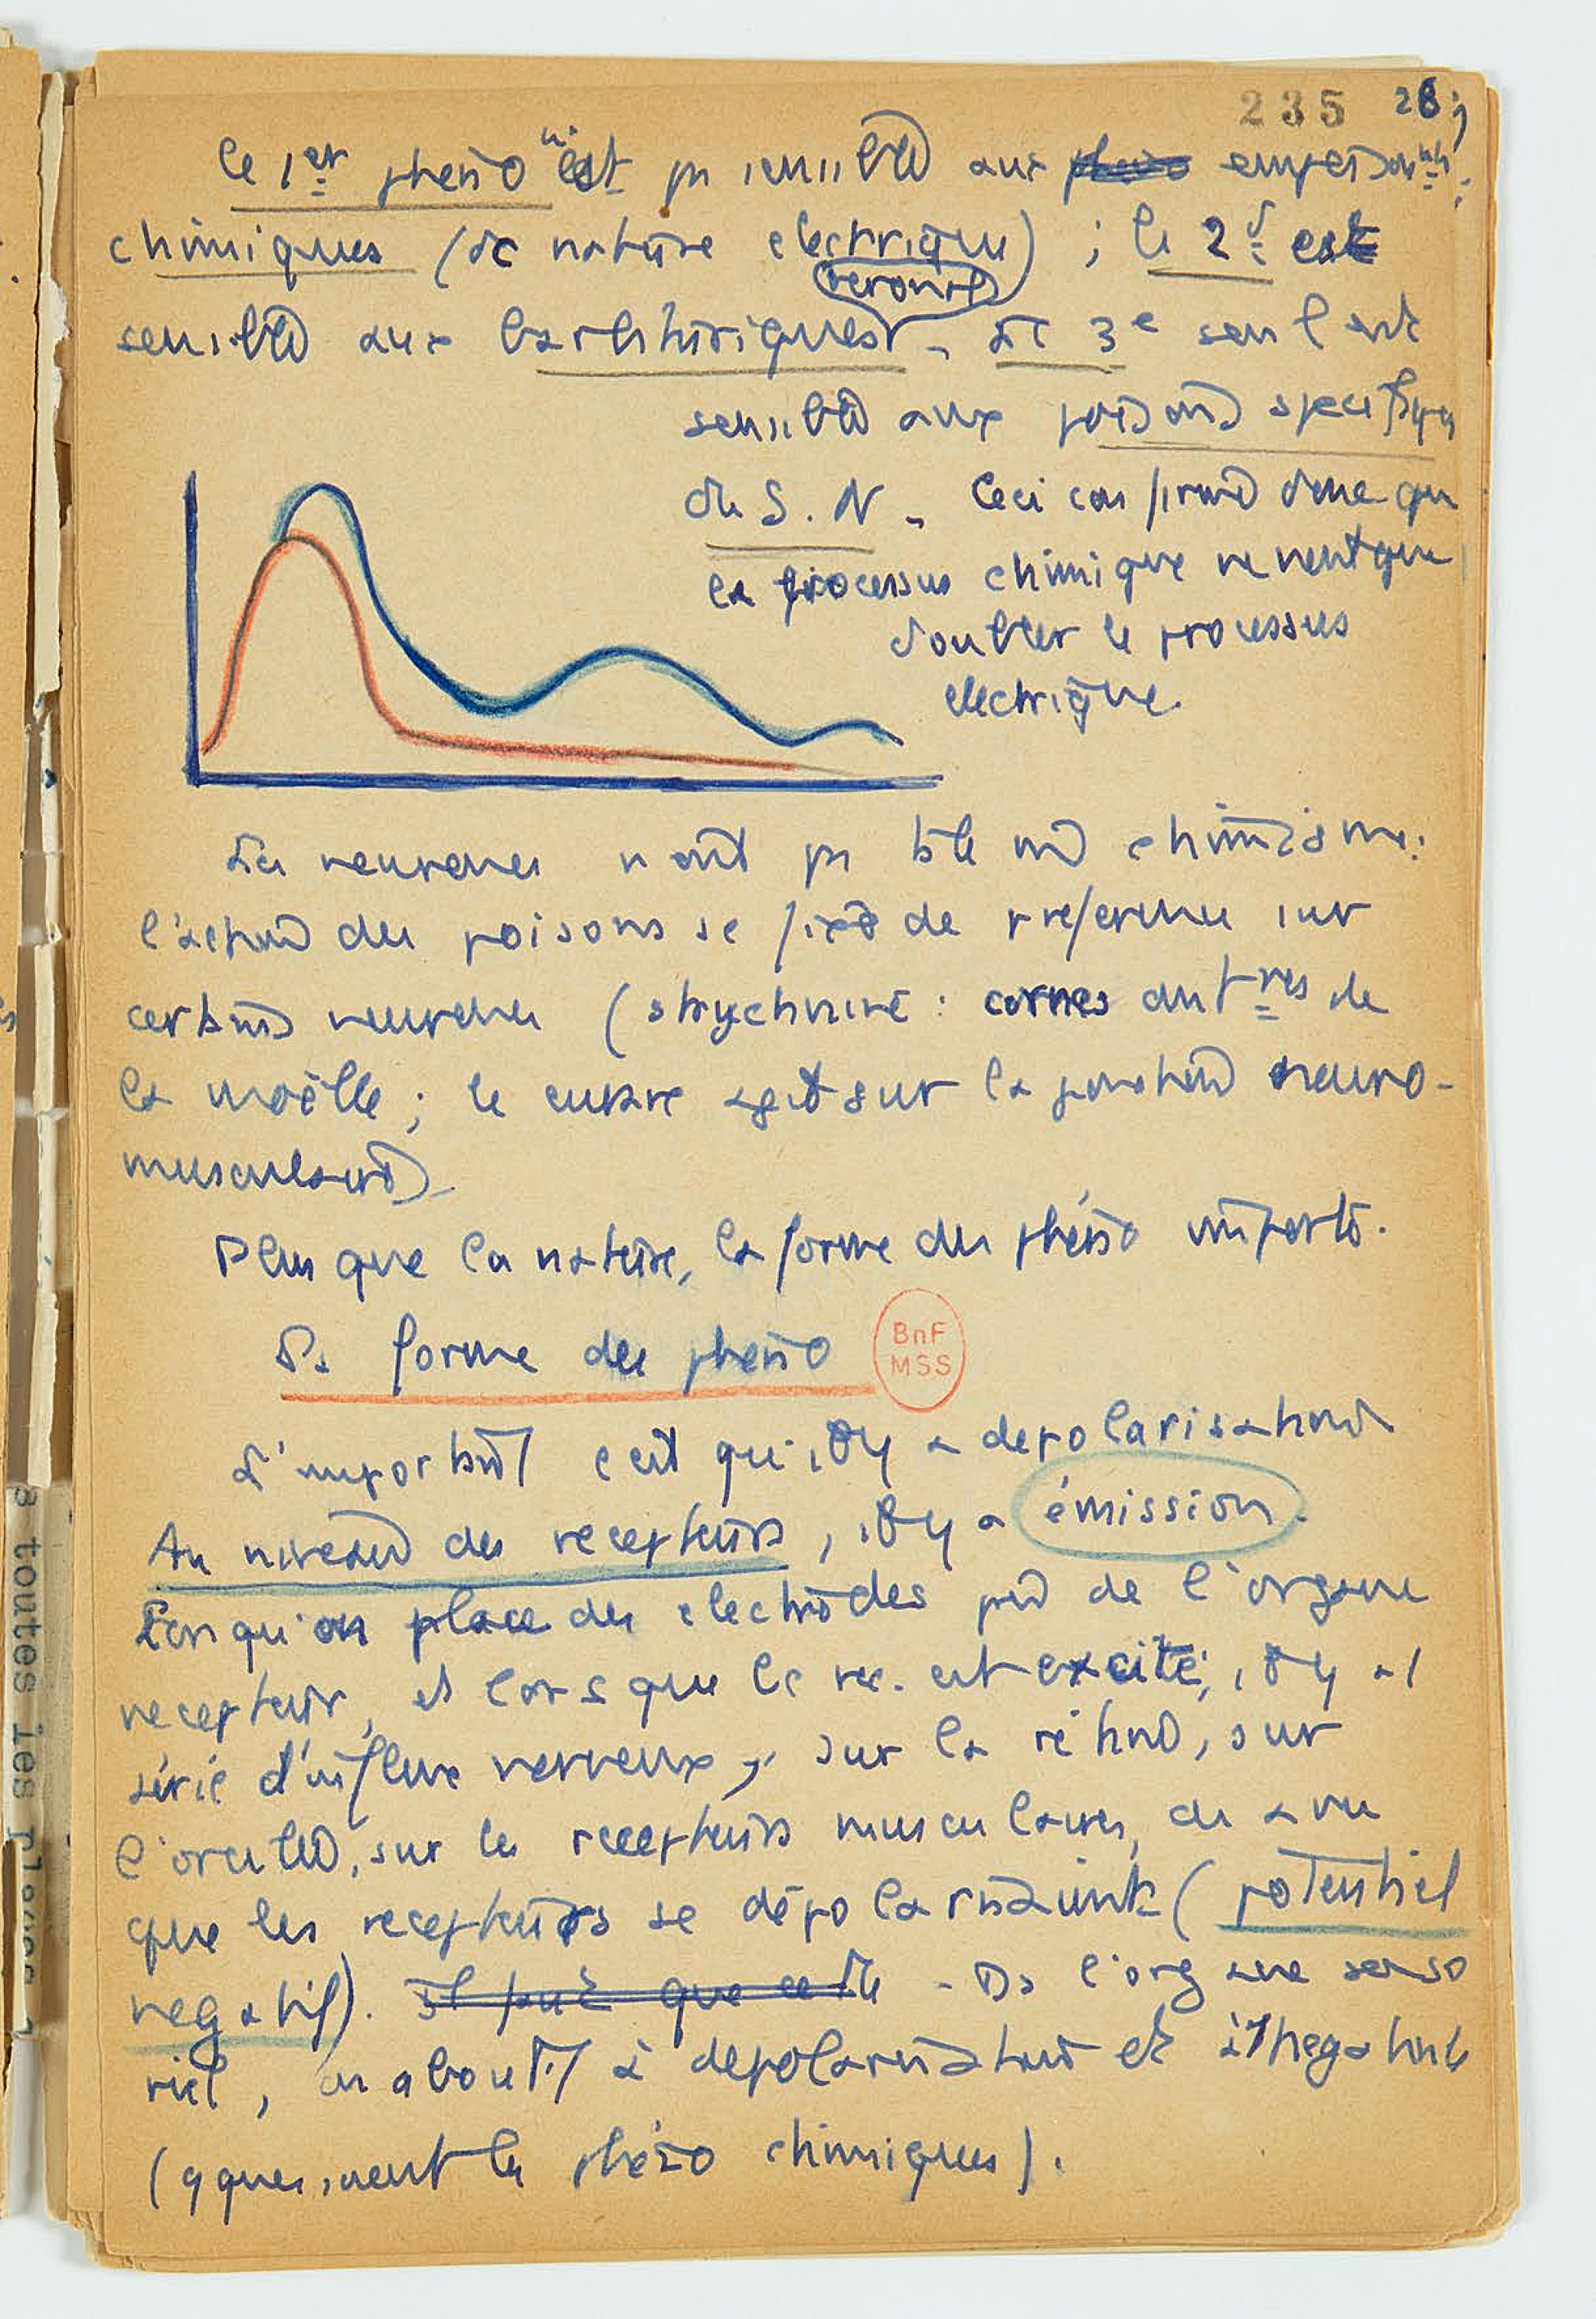 235 28
Le 1er phéno n'est pas sensible aux empoisonnts
chimiques (de nature electrique) ; le 2d est
veronal
sensible aux barbituriques - Le 3e seul est
sensible aux poisons specifiques
du S. N - Ceci confirme donc que
le processus chimique ne vient que
doubler le processus
electrique.
Les neurones n'ont pas tous le chimisme:
l'action des poisons se fixe de preference sur
certains neurones (strychnine : cornes antres de
la moëlle ; le curare agit sur la jonction neuro-
musculaire)
Plus que la nature, la forme des phéno importe.
Ds forme des phéno
BnF
MSS
L'important c'est qu'il y a depolarisation
Au niveau des recepteurs, il y a émission.
Lorsqu'on place des electrodes près de l'organe
recepteur, et lorsque le rec. est excité, il y a 1
série d'influx nerveux, sur la rétine, sur
l'oreille, sur les recepteurs musculaires, on a vu
que les recepteurs se dépolarisaient (potentiel
negatif). - Ds l'organe senso
riel, on aboutit à depolarisation et à negativité
(qques, vient les phéno chimiques).
3 toutes les places